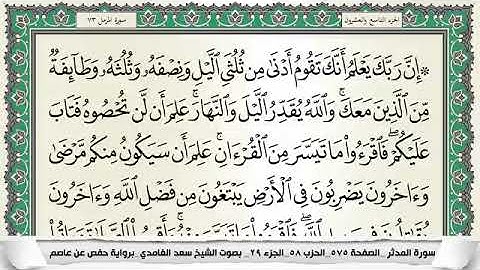 الجزء التاسع والعشرون سورة المزمل ٧٣
۞ إِنَّ رَبَّكَ يَعْلَمُ أَنَّكَ تَقُومُ أَدْنَىٰ مِن ثُلُثَيِ ٱلَّيْلِ وَنِصْفَهُۥ وَثُلُثَهُۥ وَطَآئِفَةٌ
مِّنَ ٱلَّذِينَ مَعَكَۚ وَٱللَّهُ يُقَدِّرُ ٱلَّيْلَ وَٱلنَّهَارَۚ عَلِمَ أَن لَّن تُحْصُوهُ فَتَابَ
عَلَيْكُمْۖ فَٱقْرَءُوا۟ مَا تَيَسَّرَ مِنَ ٱلْقُرْءَانِۚ عَلِمَ أَن سَيَكُونُ مِنكُم مَّرْضَىٰ
وَءَاخَرُونَ يَضْرِبُونَ فِى ٱلْأَرْضِ يَبْتَغُونَ مِن فَضْلِ ٱللَّهِ وَءَاخَرُونَ
سورة المدثر _الصفحة ٥٧٥_الحزب ٥٨_الجزء ٢٩ _ بصوت الشيخ سعد الغامدي_برواية حفص عن عاصم